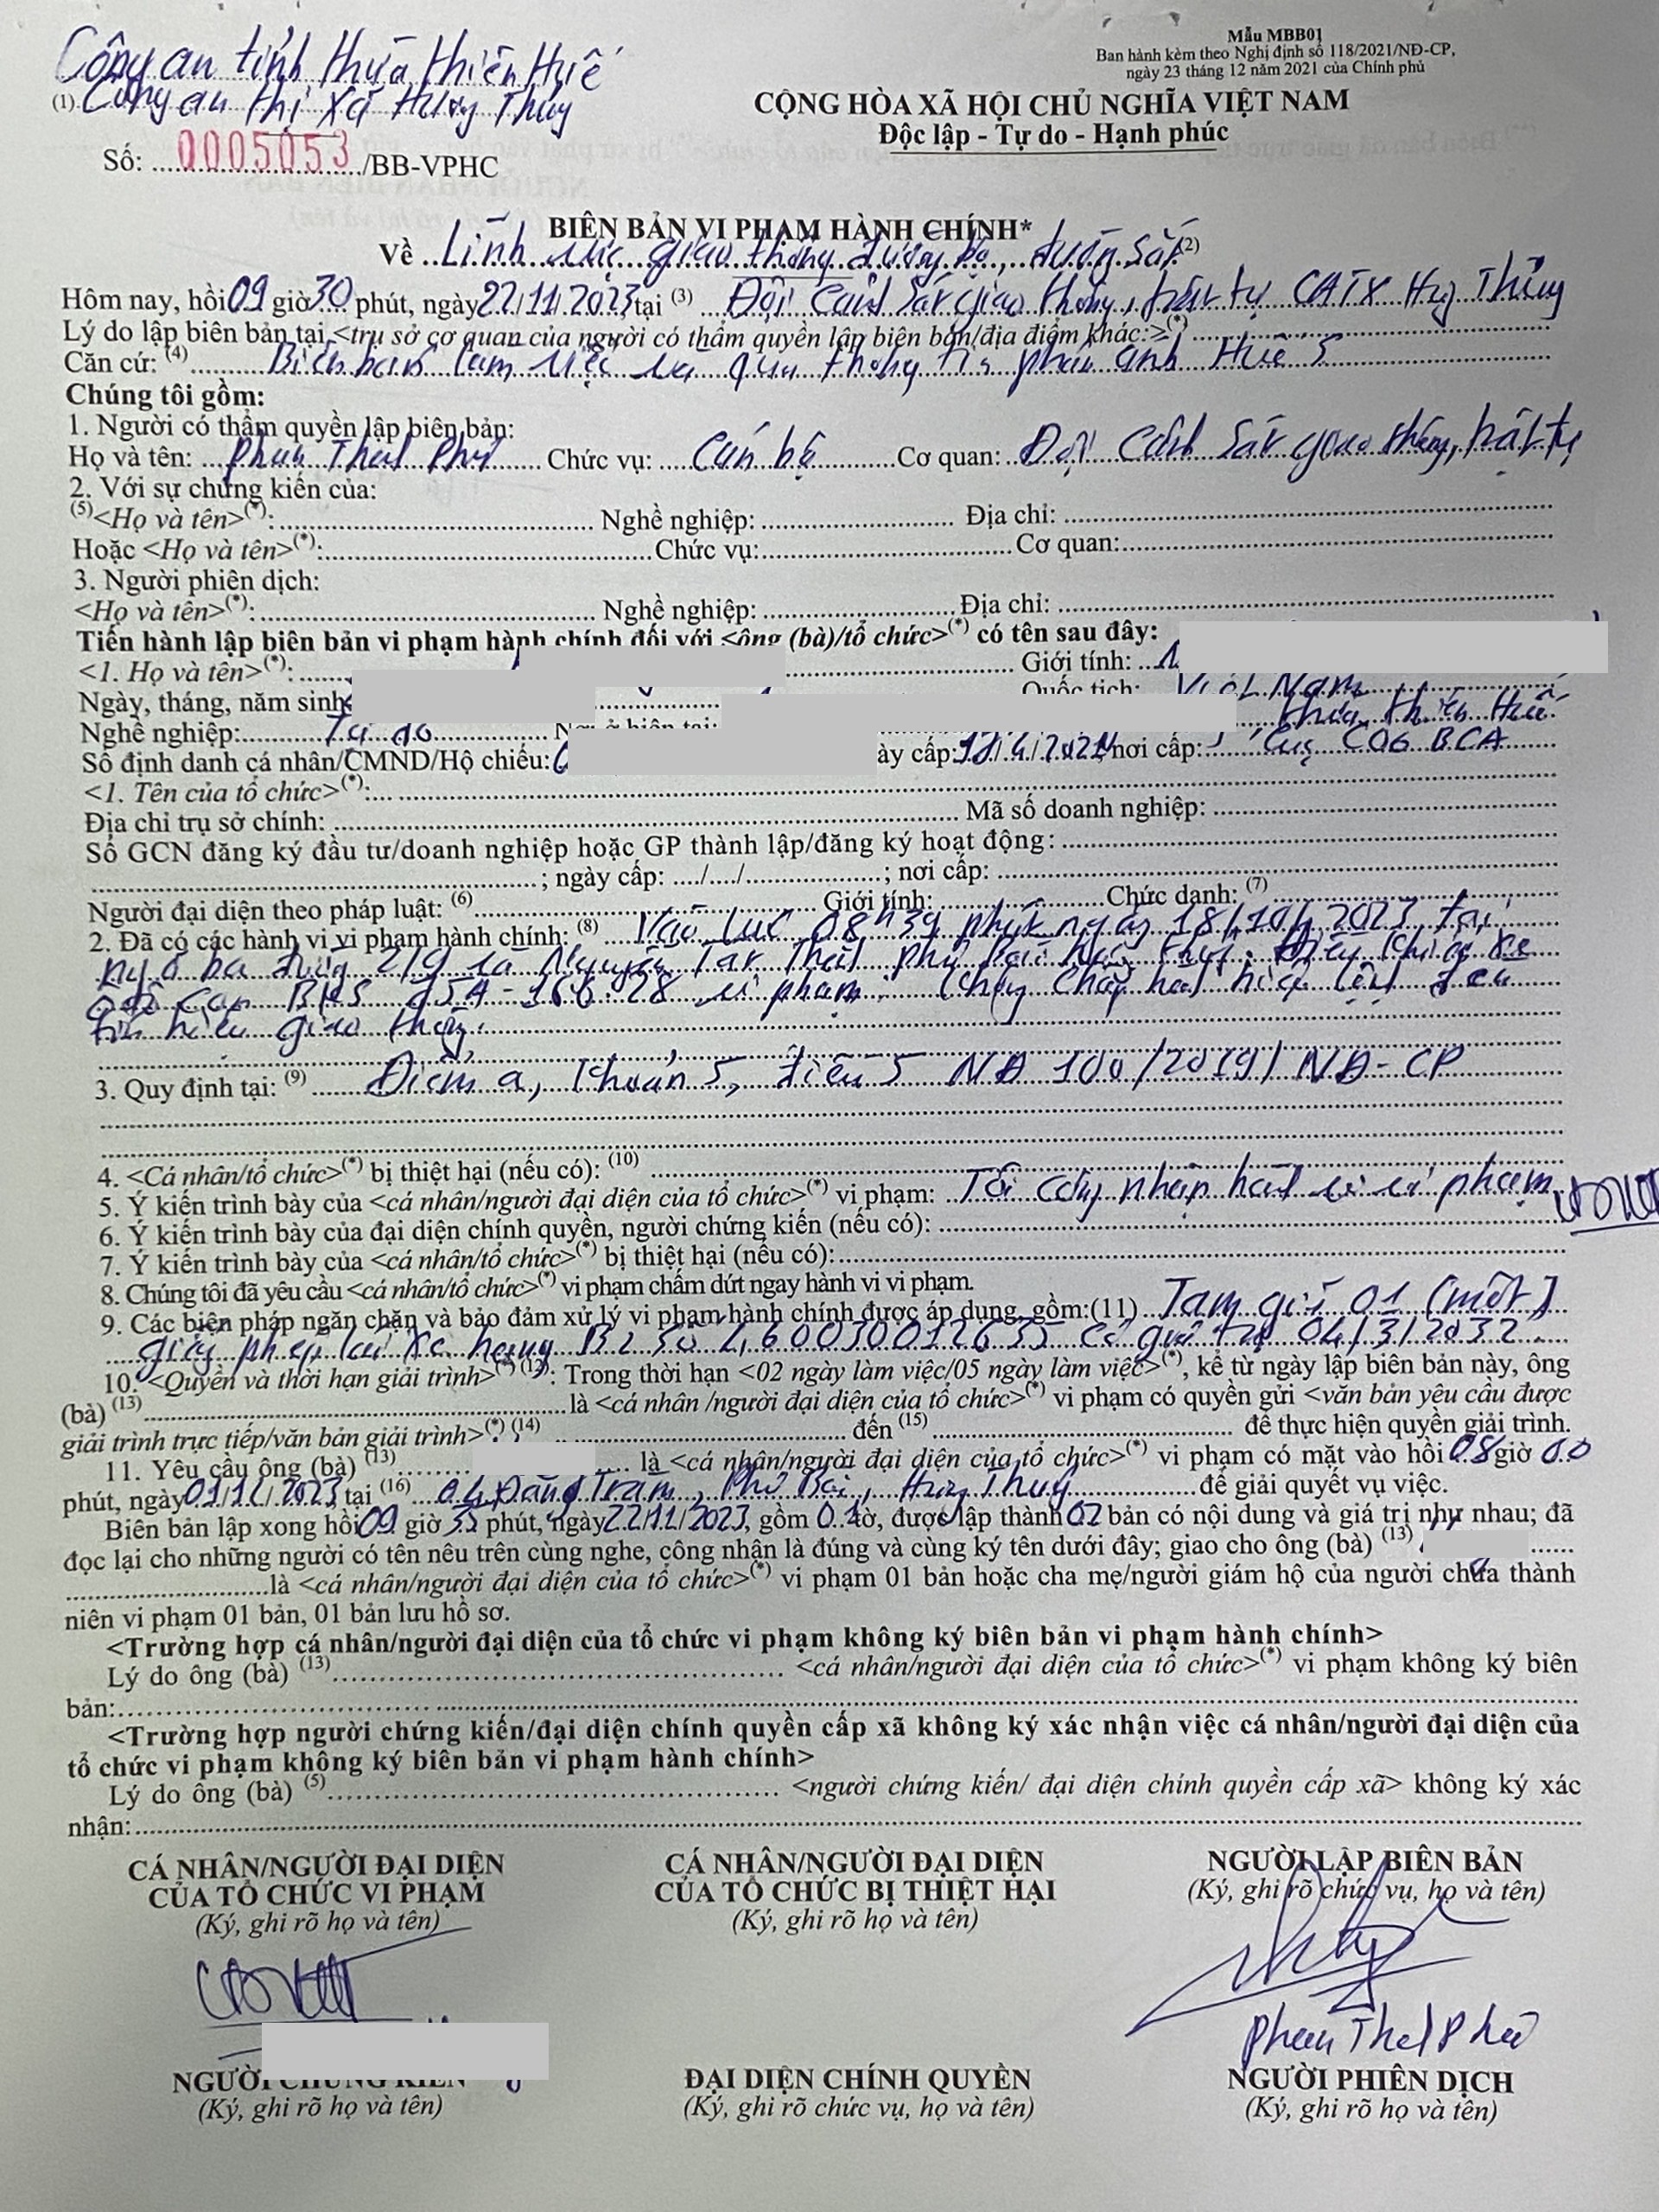 Mẫu MBB01
Ban hành kèm theo Nghị định số 118/2021/NĐ-CP,
ngày 23 tháng 12 năm 2021 của Chính phủ
Công an tỉnh Thừa Thiên Huế
(1) Công an thị xã Hương Thủy
CỘNG HÒA XÃ HỘI CHỦ NGHĨA VIỆT NAM
Độc lập - Tự do - Hạnh phúc
Số: 0005053/BB-VPHC
BIÊN BẢN VI PHẠM HÀNH CHÍNH*
Về Lĩnh vực giao thông đường bộ, đường sắt (2)
Hôm nay, hồi 09 giờ 30 phút, ngày 22/11/2023 tại (3) Đội Cảnh sát giao thông, trật tự CATX Hg Thủy
Lý do lập biên bản tại <trụ sở cơ quan của người có thẩm quyền lập biên bản/địa điểm khác:>(*)
Căn cứ: (4) Biên bản làm việc và qua thông tin phản ánh Huế S
Chúng tôi gồm:
1. Người có thẩm quyền lập biên bản:
Họ và tên: Phan Thế Phú Chức vụ: Cán bộ Cơ quan: Đội Cảnh sát giao thông, trật tự
2. Với sự chứng kiến của:
(5)<Họ và tên>(*): Nghề nghiệp: Địa chỉ:
Hoặc <Họ và tên>(*): Chức vụ: Cơ quan:
3. Người phiên dịch:
<Họ và tên>(*): Nghề nghiệp: Địa chỉ:
Tiến hành lập biên bản vi phạm hành chính đối với <ông (bà)/tổ chức>(*) có tên sau đây:
<1. Họ và tên>(*): Giới tính:
Ngày, tháng, năm sinh Quốc tịch: Việt Nam
Nghề nghiệp: Tự do Nơi ở hiện tại: Thừa Thiên Huế
Số định danh cá nhân/CMND/Hộ chiếu: ày cấp: /4/2021 nơi cấp: Cục C06 BCA
<1. Tên của tổ chức>(*):
Địa chỉ trụ sở chính: Mã số doanh nghiệp:
Số GCN đăng ký đầu tư/doanh nghiệp hoặc GP thành lập/đăng ký hoạt động:
; ngày cấp: ..../..../ ; nơi cấp:
Người đại diện theo pháp luật: (6) Giới tính: Chức danh: (7)
2. Đã có các hành vi vi phạm hành chính: (8) Vào lúc 08h39 phút ngày 18/10/2023 tại
ngã ba đường 2/9 và Nguyễn Tất Thành, Phú Bài, Hương Thủy. Điều khiển xe
ôtô con BKS 75A-166.28 vi phạm: không chấp hành hiệu lệnh đèn
tín hiệu giao thông.
3. Quy định tại: (9) Điểm a, Khoản 5, điều 5 NĐ 100/2019/NĐ-CP
4. <Cá nhân/tổ chức>(*) bị thiệt hại (nếu có): (10)
5. Ý kiến trình bày của <cá nhân/người đại diện của tổ chức>(*) vi phạm: Tôi công nhận hành vi vi phạm
6. Ý kiến trình bày của đại diện chính quyền, người chứng kiến (nếu có):
7. Ý kiến trình bày của <cá nhân/tổ chức>(*) bị thiệt hại (nếu có):
8. Chúng tôi đã yêu cầu <cá nhân/tổ chức>(*) vi phạm chấm dứt ngay hành vi vi phạm.
9. Các biện pháp ngăn chặn và bảo đảm xử lý vi phạm hành chính được áp dụng, gồm:(11) Tạm giữ 01 (một)
giấy phép lái xe hạng B2 số có giá trị 04/3/2032
10. <Quyền và thời hạn giải trình>(*) (12): Trong thời hạn <02 ngày làm việc/05 ngày làm việc>(*), kể từ ngày lập biên bản này, ông
(bà) (13) là <cá nhân /người đại diện của tổ chức>(*) vi phạm có quyền gửi <văn bản yêu cầu được
giải trình trực tiếp/văn bản giải trình>(*) (14) đến (15) để thực hiện quyền giải trình.
11. Yêu cầu ông (bà) (13) là <cá nhân/người đại diện của tổ chức>(*) vi phạm có mặt vào hồi 08 giờ 00
phút, ngày 01/12/2023 tại (16) Đặng Tràm, Phú Bài, Hương Thủy để giải quyết vụ việc.
Biên bản lập xong hồi 09 giờ 55 phút, ngày 22/11/2023, gồm 01 tờ, được lập thành 02 bản có nội dung và giá trị như nhau; đã
đọc lại cho những người có tên nêu trên cùng nghe, công nhận là đúng và cùng ký tên dưới đây; giao cho ông (bà) (13)
là <cá nhân/người đại diện của tổ chức>(*) vi phạm 01 bản hoặc cha mẹ/người giám hộ của người chưa thành
niên vi phạm 01 bản, 01 bản lưu hồ sơ.
<Trường hợp cá nhân/người đại diện của tổ chức vi phạm không ký biên bản vi phạm hành chính>
Lý do ông (bà) (13) <cá nhân/người đại diện của tổ chức>(*) vi phạm không ký biên
bản:
<Trường hợp người chứng kiến/đại diện chính quyền cấp xã không ký xác nhận việc cá nhân/người đại diện của
tổ chức vi phạm không ký biên bản vi phạm hành chính>
Lý do ông (bà) (5) <người chứng kiến/ đại diện chính quyền cấp xã> không ký xác
nhận:
CÁ NHÂN/NGƯỜI ĐẠI DIỆN
CỦA TỔ CHỨC VI PHẠM
(Ký, ghi rõ họ và tên)
CÁ NHÂN/NGƯỜI ĐẠI DIỆN
CỦA TỔ CHỨC BỊ THIỆT HẠI
(Ký, ghi rõ họ và tên)
NGƯỜI LẬP BIÊN BẢN
(Ký, ghi rõ chức vụ, họ và tên)
Phan Thế Phú
NGƯỜI CHỨNG KIẾN
(Ký, ghi rõ họ và tên)
ĐẠI DIỆN CHÍNH QUYỀN
(Ký, ghi rõ chức vụ, họ và tên)
NGƯỜI PHIÊN DỊCH
(Ký, ghi rõ họ và tên)